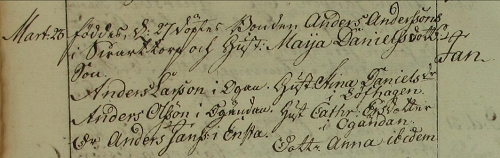 Mart: 23 föddes, d: 27 döptes Bonden Anders Anderssons
i och Hust: Maija Danielsdotts
Son. Jan.
Anders Larson i Ogan. Hust Stina Daniels dr
i Bofhagen.
Anders Olsson i Ogundan. Hust Cathr:
i Ogundan.
Dr Anders Jans: i Ensta. Dottr Anna ibidem